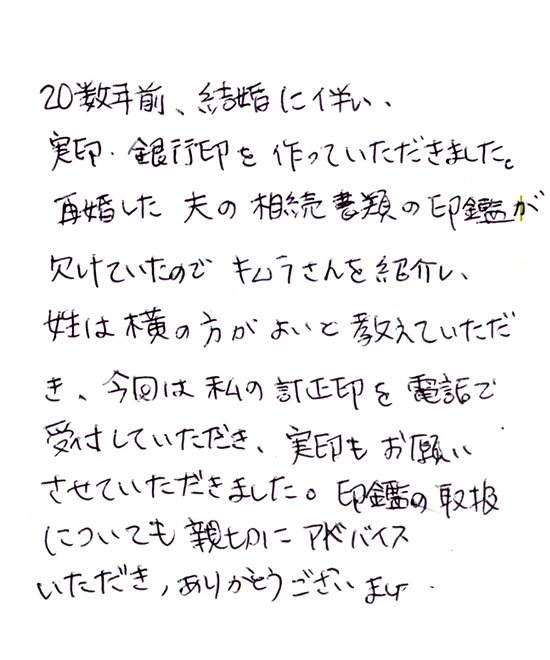 20数年前、結婚に伴い、
実印・銀行印を作っていただきました。
再婚した夫の相続書類の印鑑が
欠けていたのでキムラさんを紹介し、
姓は横の方がよいと教えていただ
き、今回は私の訂正印を電話で
受付していただき、実印もお願い
させていただきました。印鑑の取扱
についても親切にアドバイス
いただき,ありがとうございます.